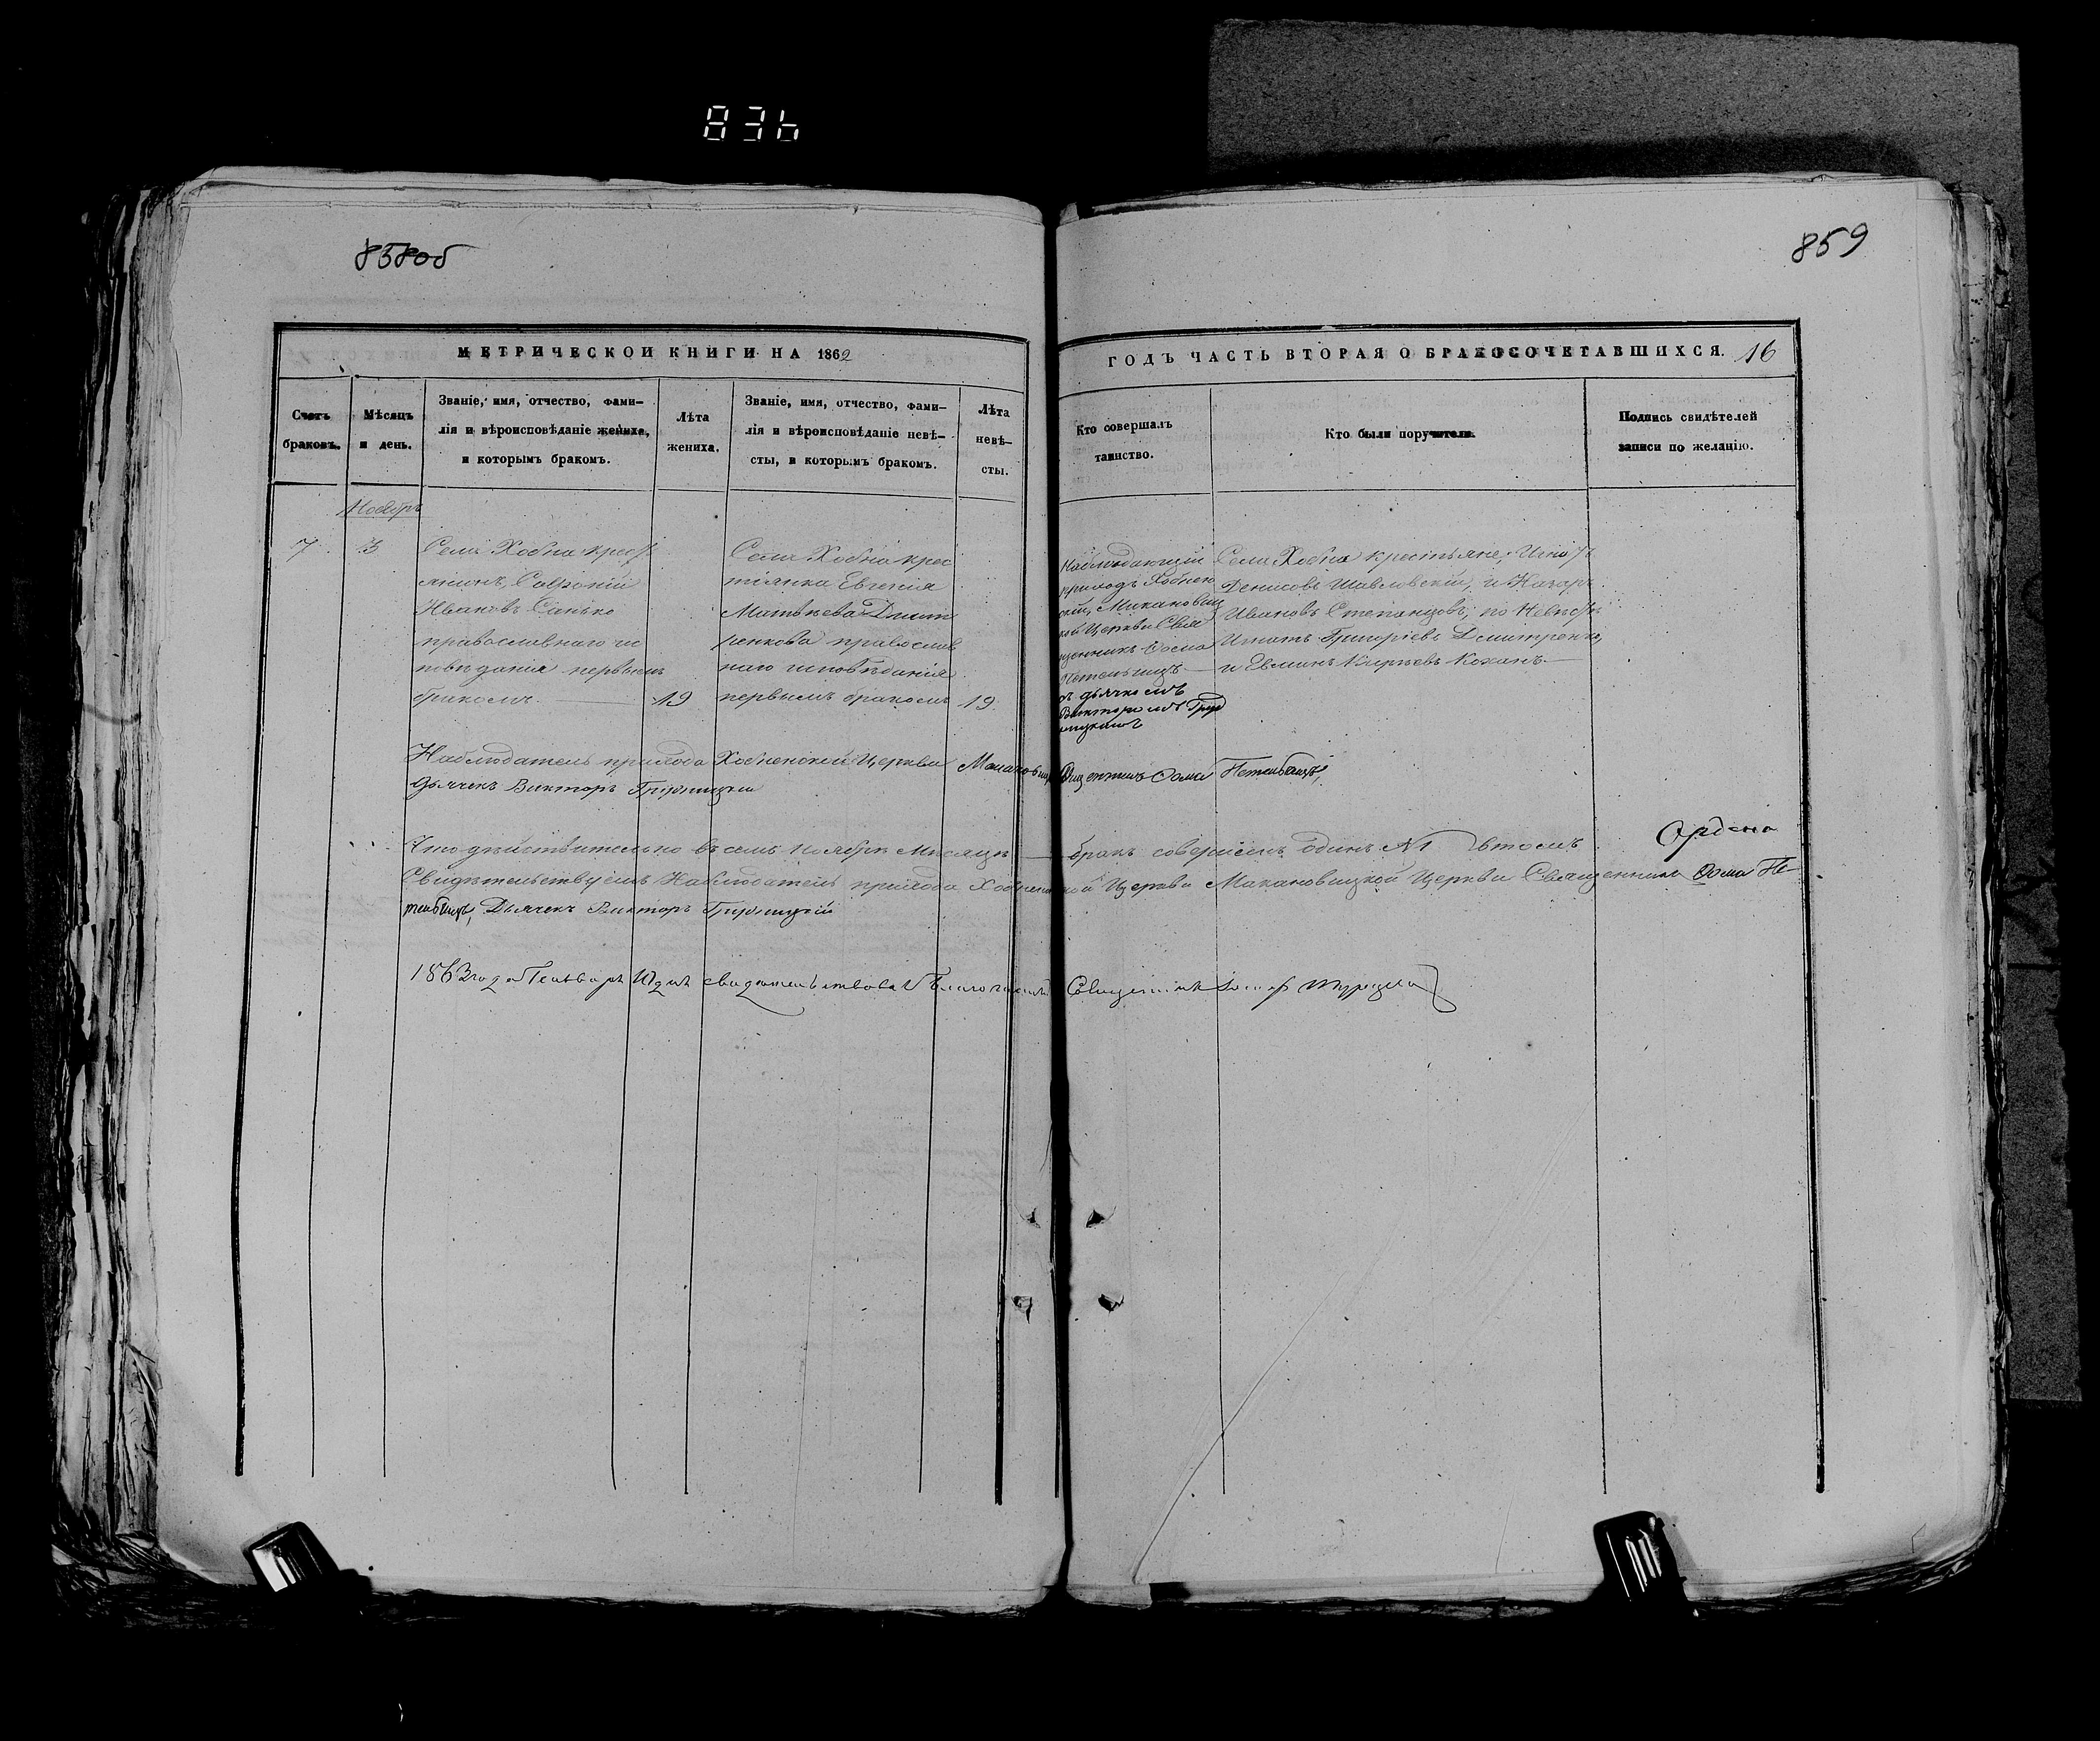 836
858об
859
МЕТРИЧЕСКОЙ КНИГИ НА 1862
ГОДЪ ЧАСТЬ ВТОРАЯ О БРАКОСОЧЕТАВШИХСЯ. 16
Счетъ браковъ.
Мѣсяцъ и день.
Званіе, имя, отчество, фами-
лія и вѣроисповѣданіе жениха,
и которымъ бракомъ.
Лѣта
жениха.
Званіе, имя, отчество, фами-
лія и вѣроисповѣданіе невѣ-
сты, и которымъ бракомъ.
Лѣта
невѣ-
сты.
Кто совершалъ
таинство.
Кто были поручители.
Подпись свидѣтелей
записи по желанію.
Ноябрь
7. 3
Села Хобна крест
янинъ Софроній
Ивановъ Санько
православнаго ис
повѣданія первымъ
бракомъ. 19
Села Хобна крес
тіянка Евгенія
Матвѣева Дмит
ренкова православ
наго исповѣданія
первымъ бракомъ 19.
Наблюдающій
приходъ Хобнен
ской, Макановиц
кой Церкви Свя
щенникъ Фома
съ дьячкомъ
Викторомъ
Села Хобна крестьяне; Игнатъ
Денисовъ Шавловскій, и Назаръ
Ивановъ Степанцовъ; по Невѣстѣ
Игнатъ Григоріевъ Дмитренко,
и Кириевъ Коханъ
Наблюдатель прихода Хобненской Церкви Священникъ Фома
Дьячекъ Викторъ
Что дѣйствительно въ семъ Ноябрѣ Мѣсяцѣ бракъ совершенъ одинъ №1 въ томъ
Свидѣтельствуемъ Наблюдатель прихода Хобненской Церкви Макановицкой Церкви Священникъ Фома Не-
Дьячекъ Викторъ
1863 года Генваря дня свидѣтельствовалъ Благочинный Священникъ